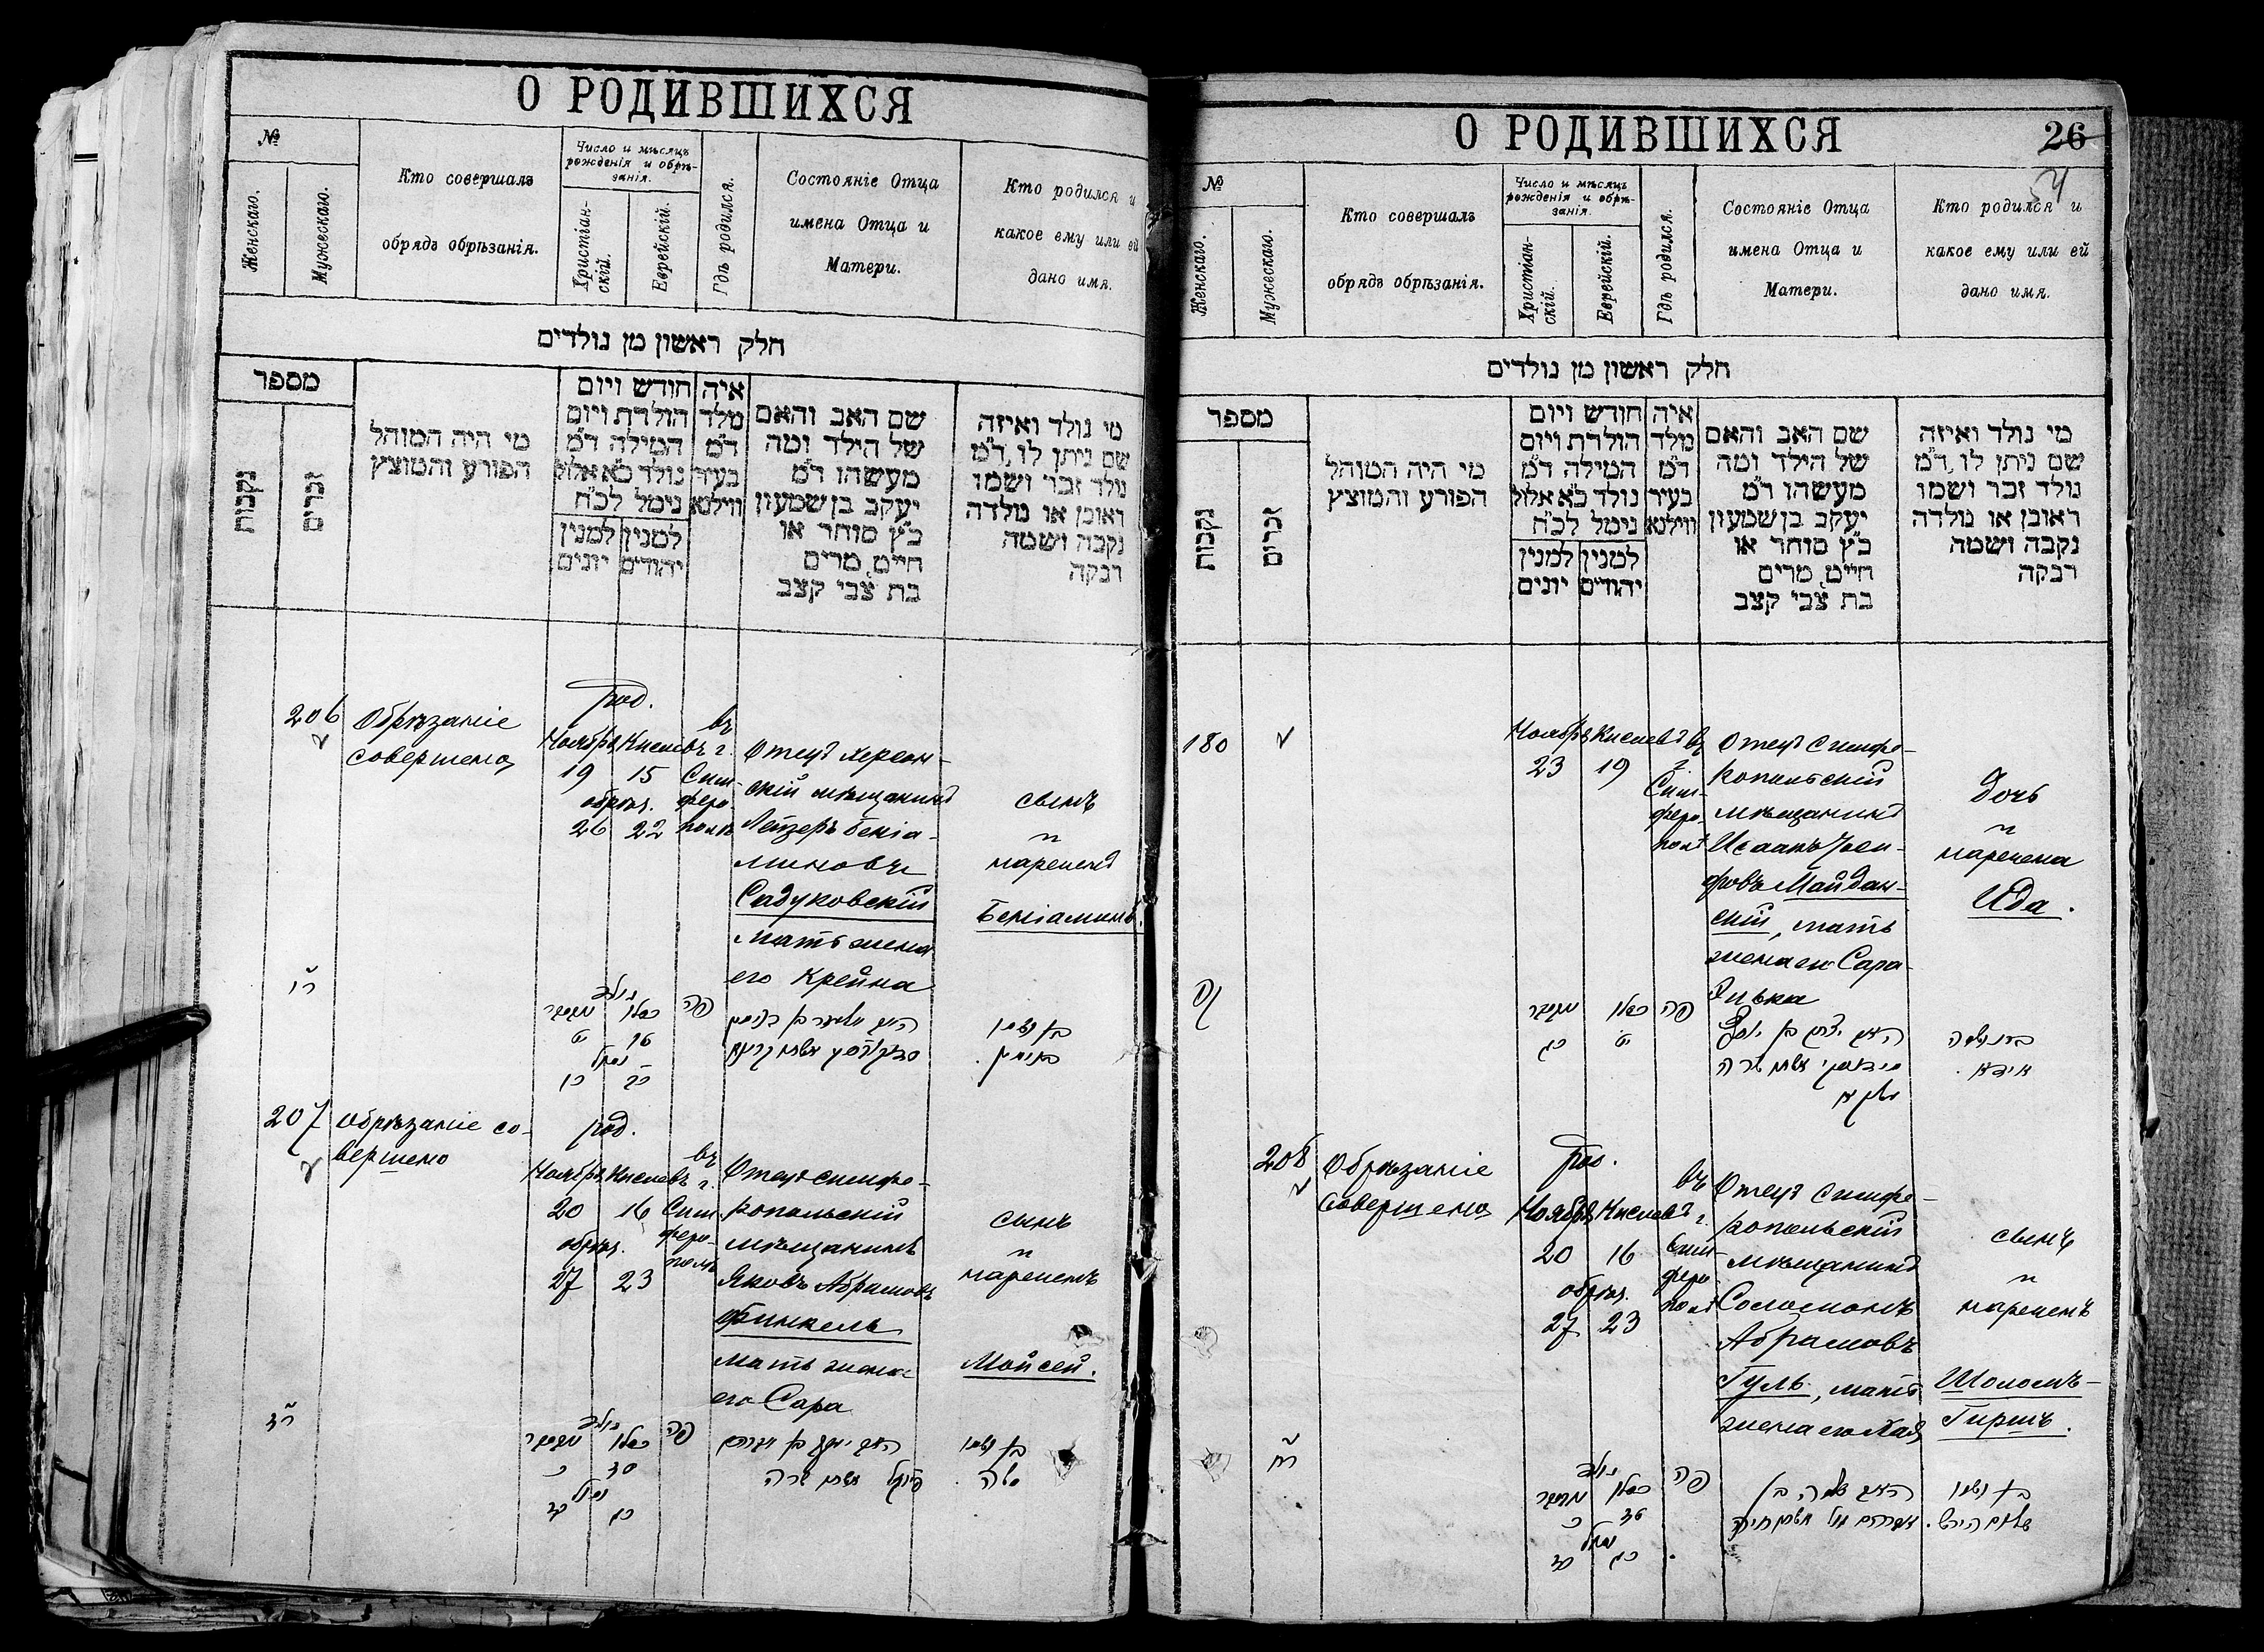 О РОДИВШИХСЯ
№
Женскаго.
Мужескаго.
Кто совершалъ
обрядъ обрѣзанія.
Число и мѣсяцъ
рожденія и обрѣ-
занія.
Христіан-
скій.
Еврейскій.
Гдѣ родился.
Состояніе Отца
имена Отца и
Матери.
Кто родился и
какое ему или ей
дано имя.
חלק ראשון מן נולדים
מספר
נקבות
זכרים
מי היה המוהל
הפורע והמוצץ
חודש ויום
הולדת ויום
המילה ד"מ
נולד כ"א אלול
נימל לכ"ח
למנין למנין
יהודים יונים
איה
מלד
ד"מ
בעיר
ווילנא
שם האב והאם
של הילד ומה
מעשהו ד"מ
יעקב בן שמעון
כ"ץ סוחר או
חייט, מרים
בת צבי קצב
מי נולד ואיזה
שם ניתן לו, ד"מ
נולד זכר ושמו
ראובן או נולדה
נקבה ושמה
רבקה
206
Обрѣзаніе
совершено
род.
Ноябрь Кислевъ
19 15
обрѣз.
26 22
въ
г.
Сим-
феро-
полѣ
Отецъ херсон-
скій мѣщанинъ
Лейзеръ Беніа-
миновъ
Садуковскій
мать жена
его Крейна
сынъ
и
нареченъ
Беніаминъ.
נולד
כסלו
פה
בן ושמו
בנימין.
207
Обрѣзаніе со-
вершено
род.
Ноябрь Кислевъ
20 16
обрѣз.
27 23
въ
г.
Сим-
феро-
полѣ
Отецъ симфе-
ропольскій
мѣщанинъ
Яковъ Абрамовъ
Финкель
мать жена
его Сара
сынъ
и
нареченъ
Мойсей.
נולד
כסלו
פה
ר' יעקב בן אברהם
פינקל אשתו שרה
בן ושמו
משה.
О РОДИВШИХСЯ
26
54
№
Женскаго.
Мужескаго.
Кто совершалъ
обрядъ обрѣзанія.
Число и мѣсяцъ
рожденія и обрѣ-
занія.
Христіан-
скій.
Еврейскій.
Гдѣ родился.
Состояніе Отца
имена Отца и
Матери.
Кто родился и
какое ему или ей
дано имя.
חלק ראשון מן נולדים
מספר
נקבות
זכרים
מי היה המוהל
הפורע והמוצץ
חודש ויום
הולדת ויום
המילה ד"מ
נולד כ"א אלול
נימל לכ"ח
למנין למנין
יהודים יונים
איה
מלד
ד"מ
בעיר
ווילנא
שם האב והאם
של הילד ומה
מעשהו ד"מ
יעקב בן שמעון
כ"ץ סוחר או
חייט, מרים
בת צבי קצב
מי נולד ואיזה
שם ניתן לו, ד"מ
נולד זכר ושמו
ראובן או נולדה
נקבה ושמה
רבקה
180
Ноябрь Кислевъ
23 19
въ
г.
Сим-
феро-
полѣ
Отецъ симфе-
ропольскій
мѣщанинъ
Исаакъ Іоси-
фовъ Майдан-
скій, мать
жена его Сара-
Ривка
Дочь
и
наречена
Ида.
כסלו
פה
יצחק בן יוסף
אשתו שרה
ושמה
אידא.
208
Обрѣзаніе
совершено
род.
Ноябрь Кислевъ
20 16
обрѣз.
27 23
въ
г.
Сим-
феро-
полѣ
Отецъ симфе-
ропольскій
мѣщанинъ
Соломонъ
Абрамовъ
Гуль, мать
жена его Хая
сынъ
и
нареченъ
Шоломъ-
Гиршъ.
נולד
כסלו
פה
שלמה בן
אברהם גול אשתו חיה
בן ושמו
שלום הירש.